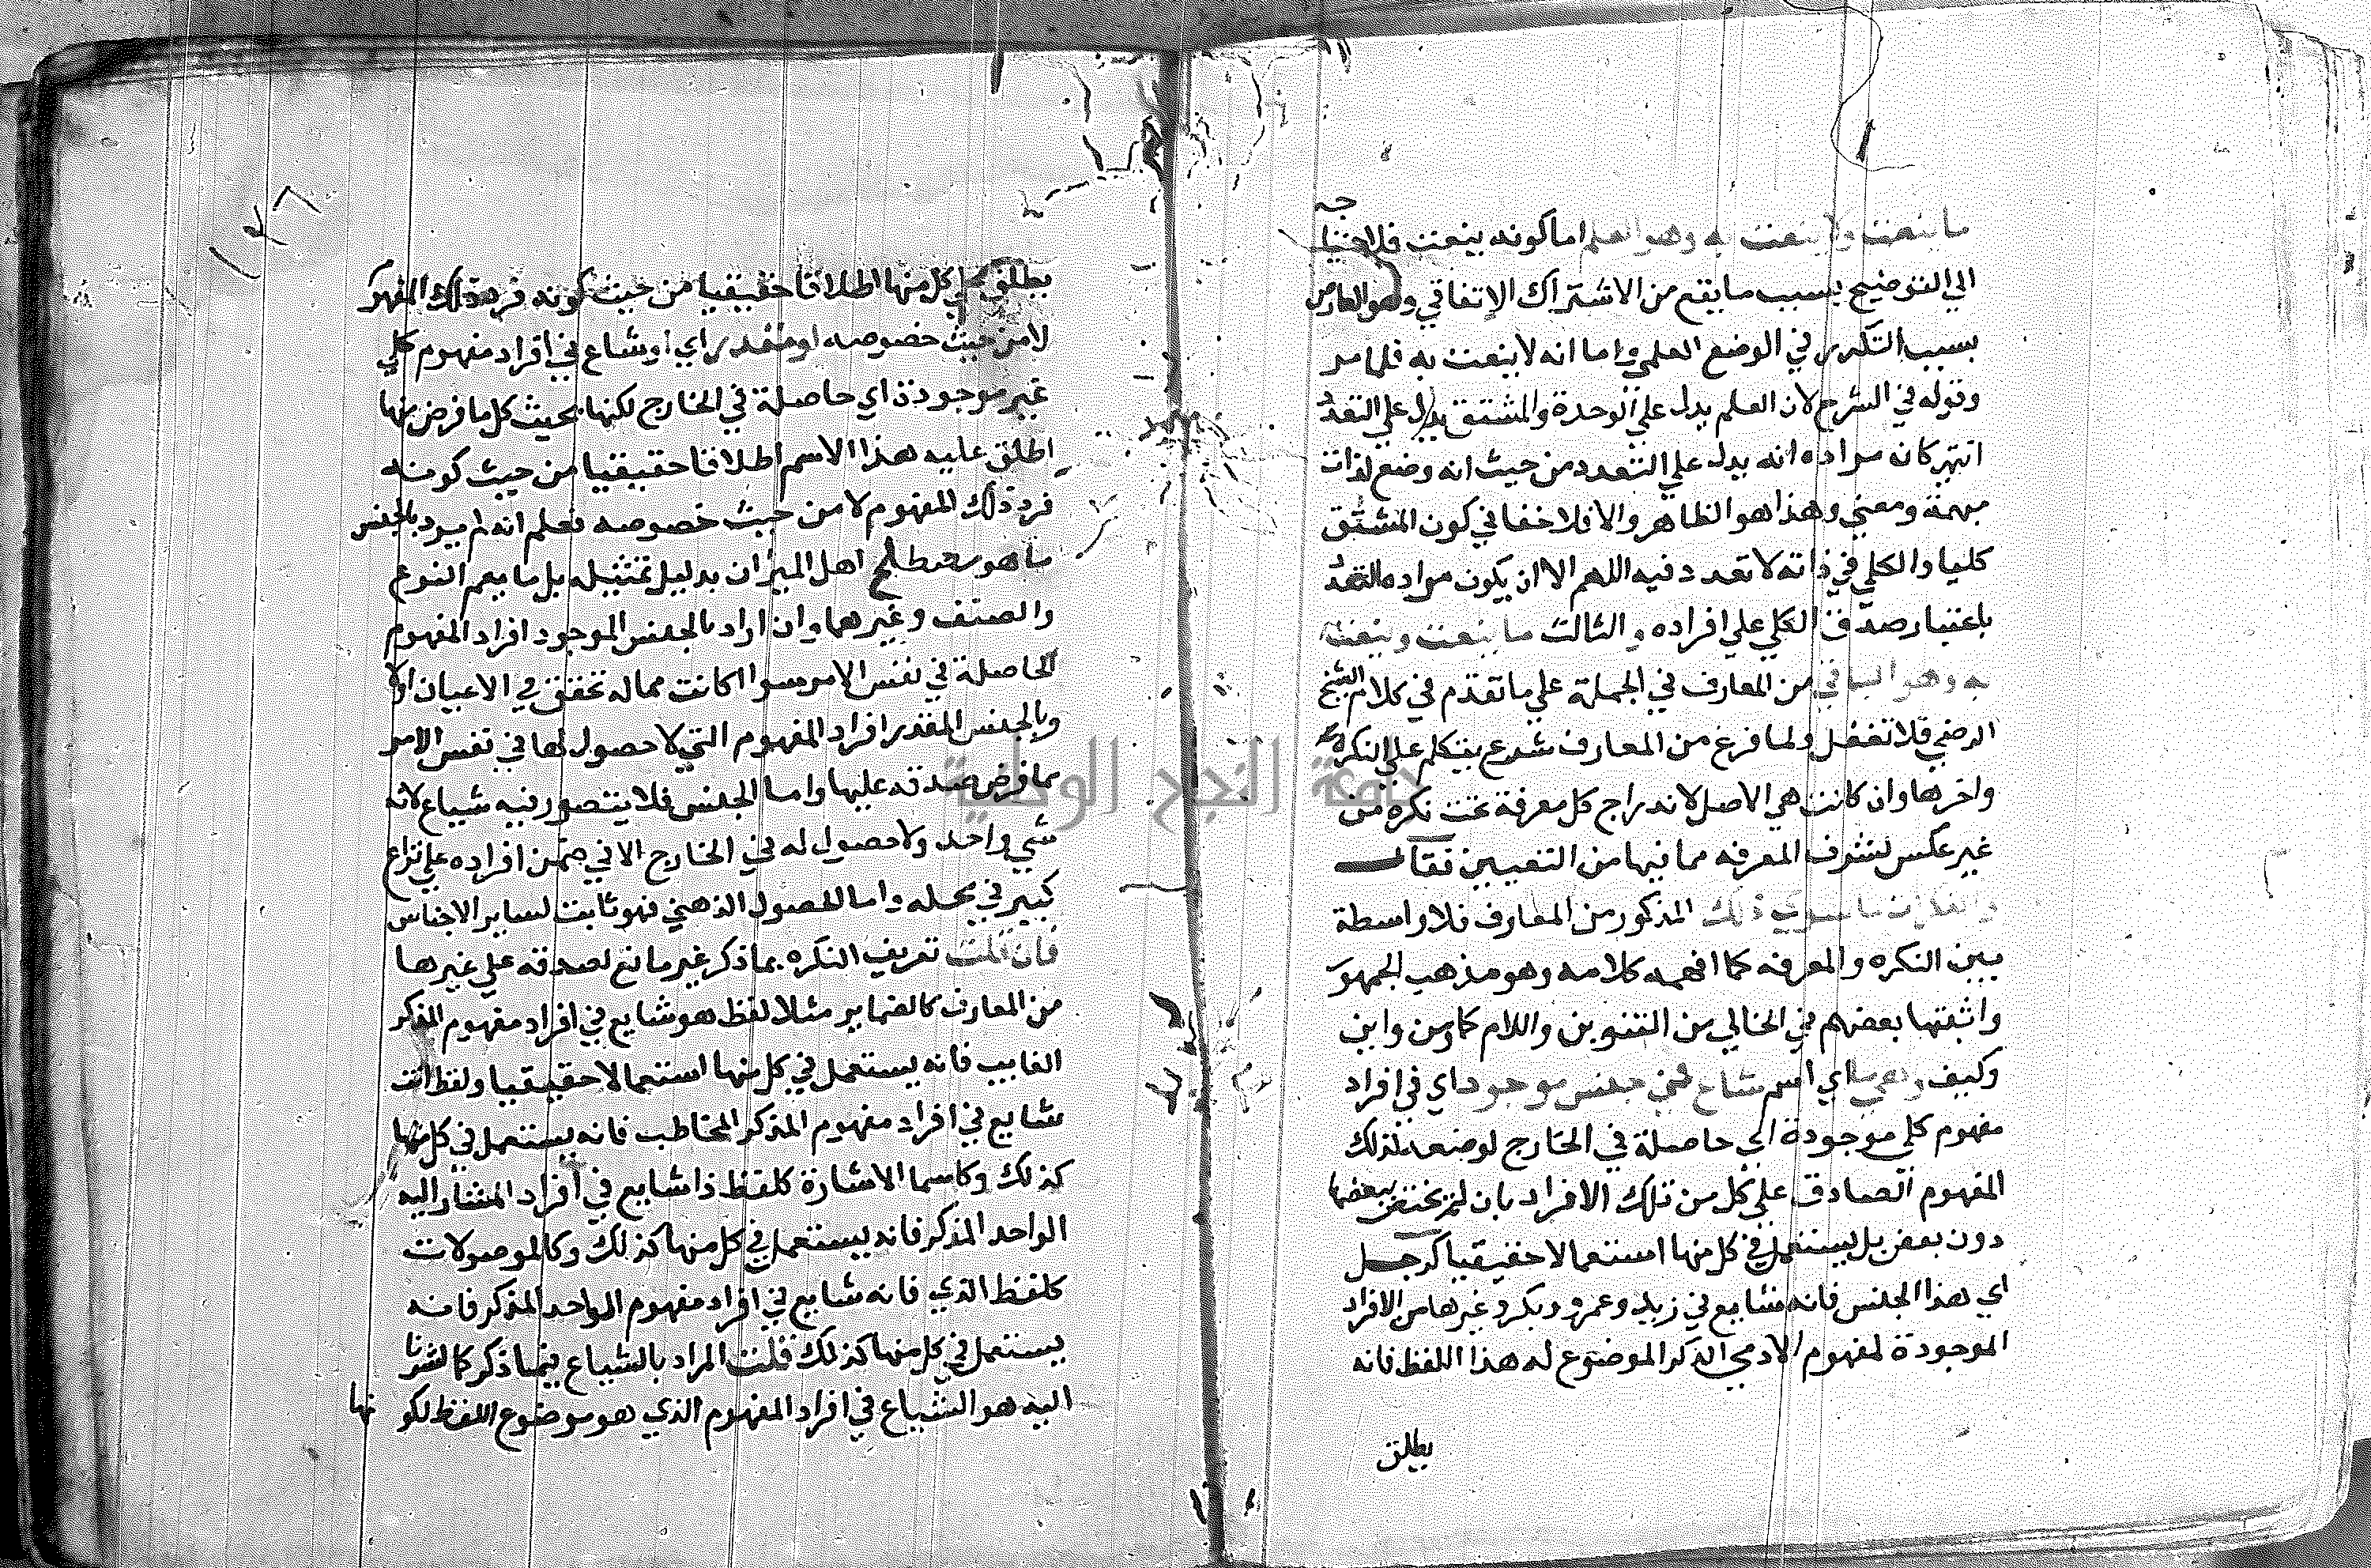 ما ينعت ولا ينعت به وهو العلم اما كونه ينعت فلاحتيا
جه
الي التوضيح بسبب ما يقع من الاشتراك الاتفاقي وهو العارض
بسبب التكرر في الوضع العلمي واما انه لا ينعت به فلما مر
وقوله في الشرح لان العلم يدل علي الوحدة والمشتق يدل علي التعدد
انتهي كان مراده انه يدل علي التعدد من حيث انه وضع لذات
مبهمة ومعني وهذا هو الظاهر والا فلا خفا في كون المشتق
كليا والكلي في ذاته لا تعدد فيه اللهم الا ان يكون مراده التعدد
باعتبار صدق الكلي علي افراده والثالث ما ينعت وينعت
به وهو الباقي من المعارف في الجملة علي ما تقدم في كلام الشيخ
الرضي فلا تغفل ولما فرغ من المعارف شرع يتكلم علي النكرة
واخرها وان كانت هي الاصل لاندراج كل معرفة تحت نكره من
غير عكس لشرف المعرفه مما فيها من التعيين فقال
والنكرات ما سوي ذلك المذكور من المعارف فلا واسطة
بين النكره والمعرفه كما افهمه كلامه وهو مذهب الجمهور
واثبتها بعضهم في الخالي من التنوين واللام كما ومن واين
وكيف وهي ما اي اسم شاع في جنس موجود اي في افراد
مفهوم كلي موجودة اي حاصلة في الخارج لوضعه لذلك
المفهوم الصادق علي كل من تلك الافراد بان لم يختص ببعضها
دون بعض بل يستعمل في كل منها استعمالا حقيقيا كرجل
اي هذا الجنس فانه شايع في زيد وعمرو وبكر وغيرها من الافراد
الموجودة لمفهوم الادمي الذكر الموضوع له هذا اللفظ فانه
يطلق
١٧٦
يطلق علي كل منها اطلاقا حقيقيا من حيث كونه فرد ذلك المفهوم
لا من حيث خصوصه او مقدر اي او شاع في افراد مفهوم كلي
غير موجودة اي حاصلة في الخارج لكنها بحيث كل ما فرض منها
اطلق عليه هذا الاسم اطلاقا حقيقيا من حيث كونه
فرد ذلك المفهوم لا من حيث خصوصه فعلم انه لم يرد بالجنس
ما هو مصطلح اهل الميزان بدليل تمثيله بل ما يعم النوع
والصنف وغيرهما وان اراد بالجنس الموجود افراد المفهوم
الحاصلة في نفس الامر سوا كانت مما له تحقق في الاعيان اولا
وبالجنس المقدر افراد المفهوم التي لا حصول لها في نفس الامر
مما فرض صدقه عليها واما الجنس فلا يتصور فيه شياع لانه
شي واحد ولا حصول له في الخارج الا في ضمن افراده علي نزاع
كبير في محله واما الحصول الذهني فهو ثابت لساير الاجناس
فان قلت تعريف النكره بما ذكر غير مانع لصدقه علي غيرها
من المعارف كالضماير مثلا لفظ هو شايع في افراد مفهوم المذكر
الغايب فانه يستعمل في كل منها استعمالا حقيقيا ولفظ انت
شايع في افراد مفهوم المذكر المخاطب فانه يستعمل في كل منها
كذلك وكاسما الاشارة كلفظ ذا شايع في افراد المشار اليه
الواحد المذكر فانه يستعمل في كل منها كذلك وكالموصولات
كلفظ الذي فانه شايع في افراد مفهوم الواحد المذكر فانه
يستعمل في كل منها كذلك قلت المراد بالشياع فيما ذكر كما اشرنا
اليه هو الشياع في افراد المفهوم الذي هو موضوع اللفظ لكونها
جامعة النجاح الوطنية